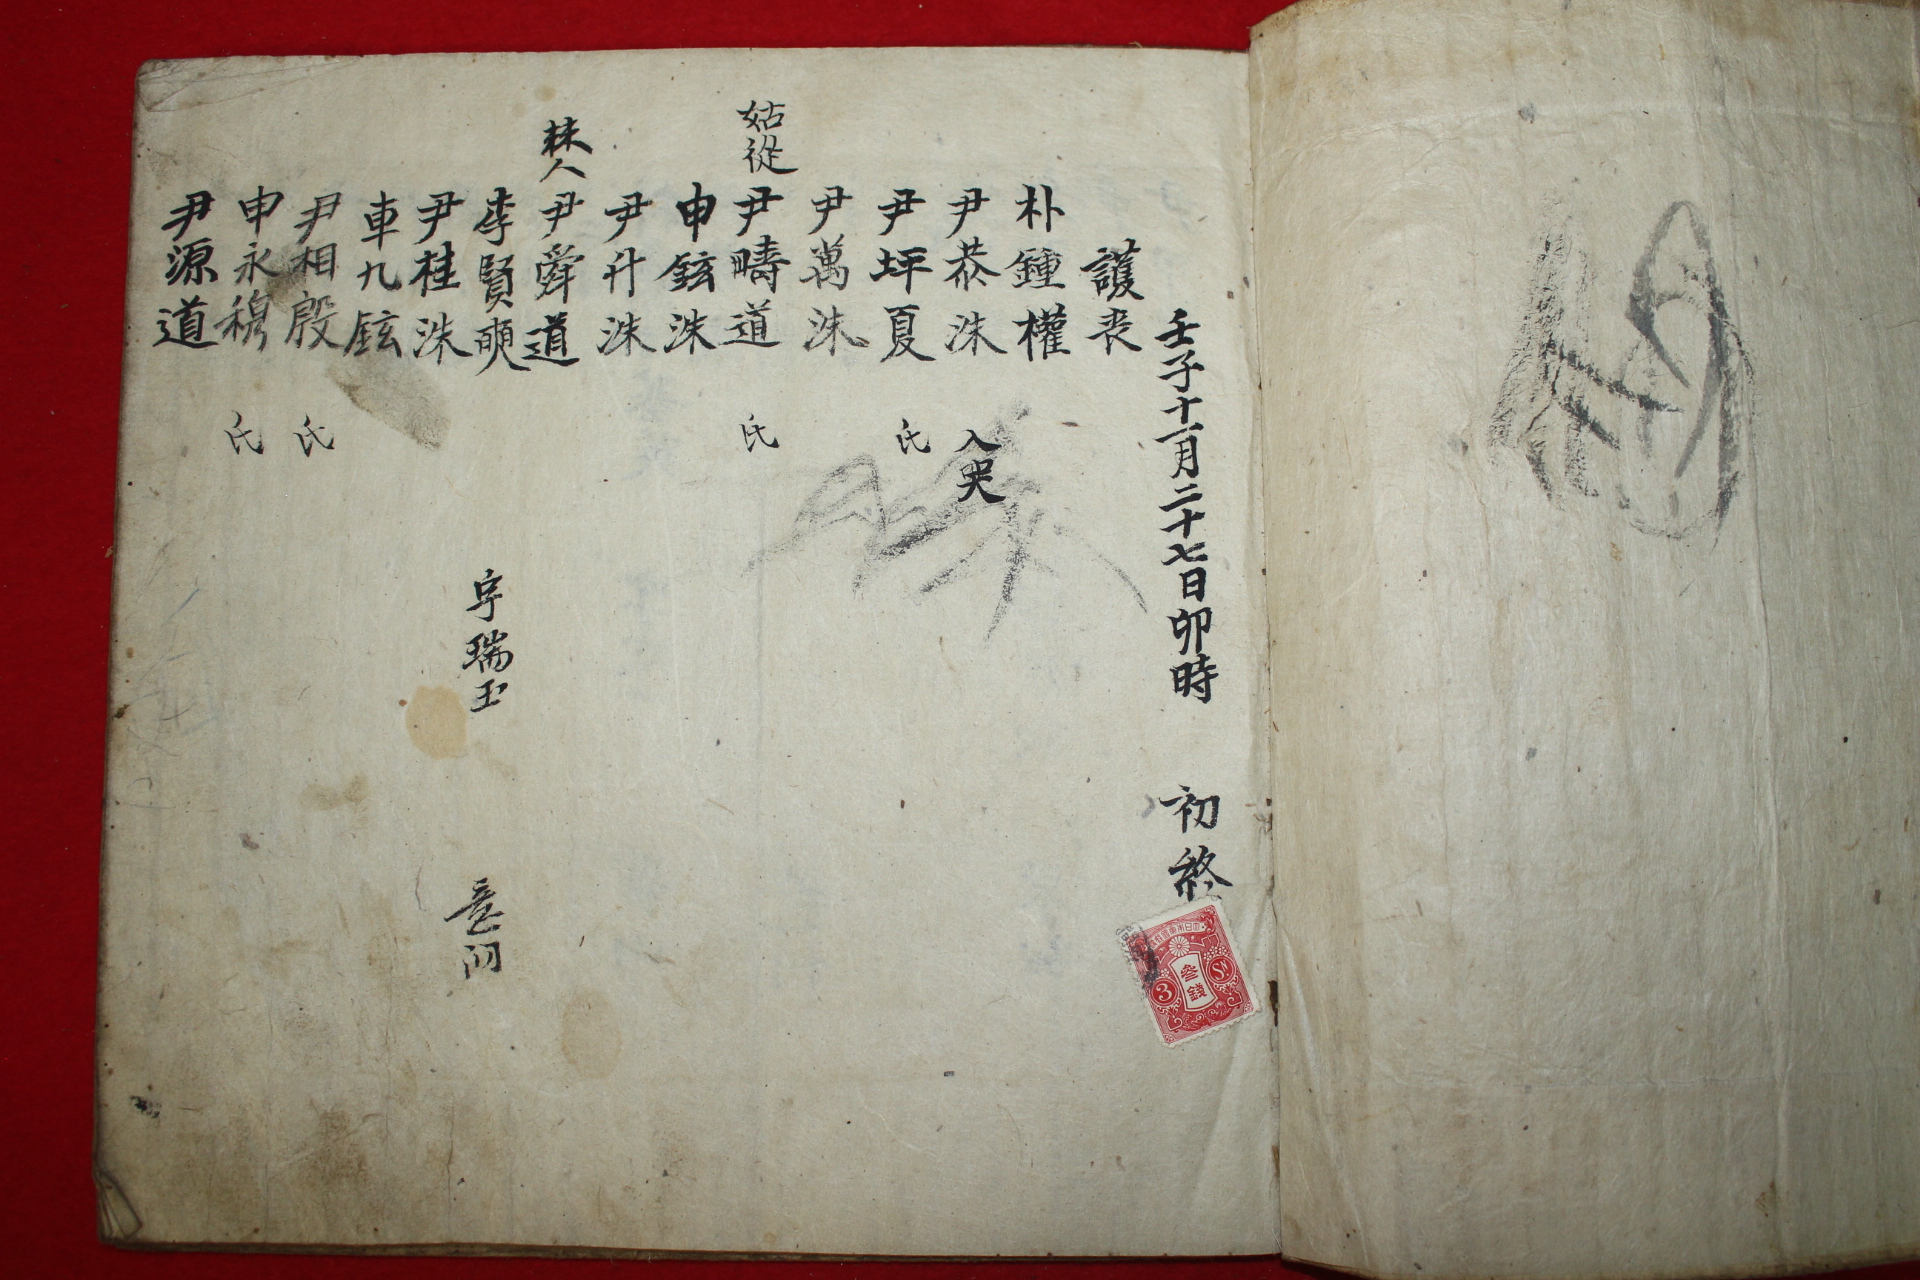 壬子十一月二十七日卯時 初終
護丧
朴鍾權
尹恭洙 入哭
尹坪夏 氏
尹萬洙
姑從 尹疇道 氏
申鉉洙
尹升洙
尹舜道
李賢奭 字瑞玉
尹桂洙
車九鉉
尹相殷 氏
申永穆 氏
尹源道
参錢
3
Sn